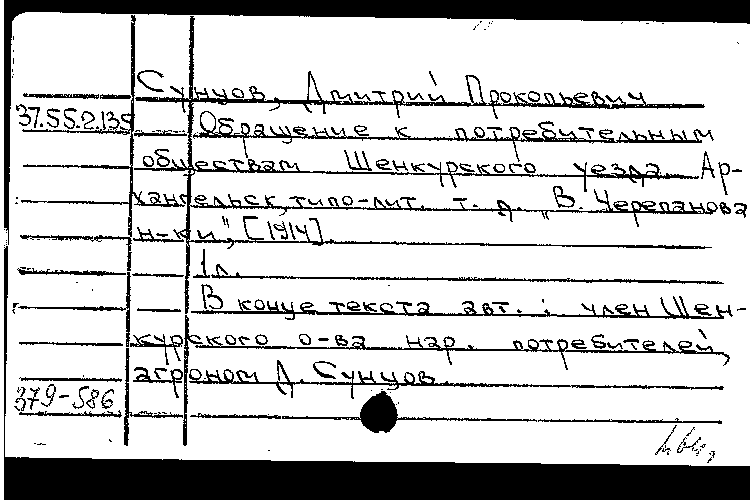 Сунцов, Дмитрий Прокопьевич
37.55.2.135
Обращение к потребительным
обществам Шенкурского уезда. Ар-
хангельск, типо-лит. т. д. "В. Черепанова
н-ки", [1914].
1л.
В конце текста авт.: член Шен-
курского о-ва нар. потребителей,
агроном Д. Сунцов.
379-586